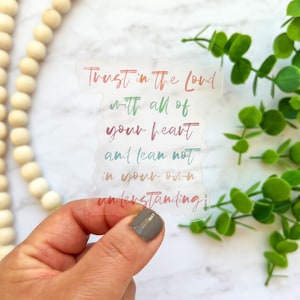 Trust in the Lord
with all of
your heart
and lean not
in your own
understanding